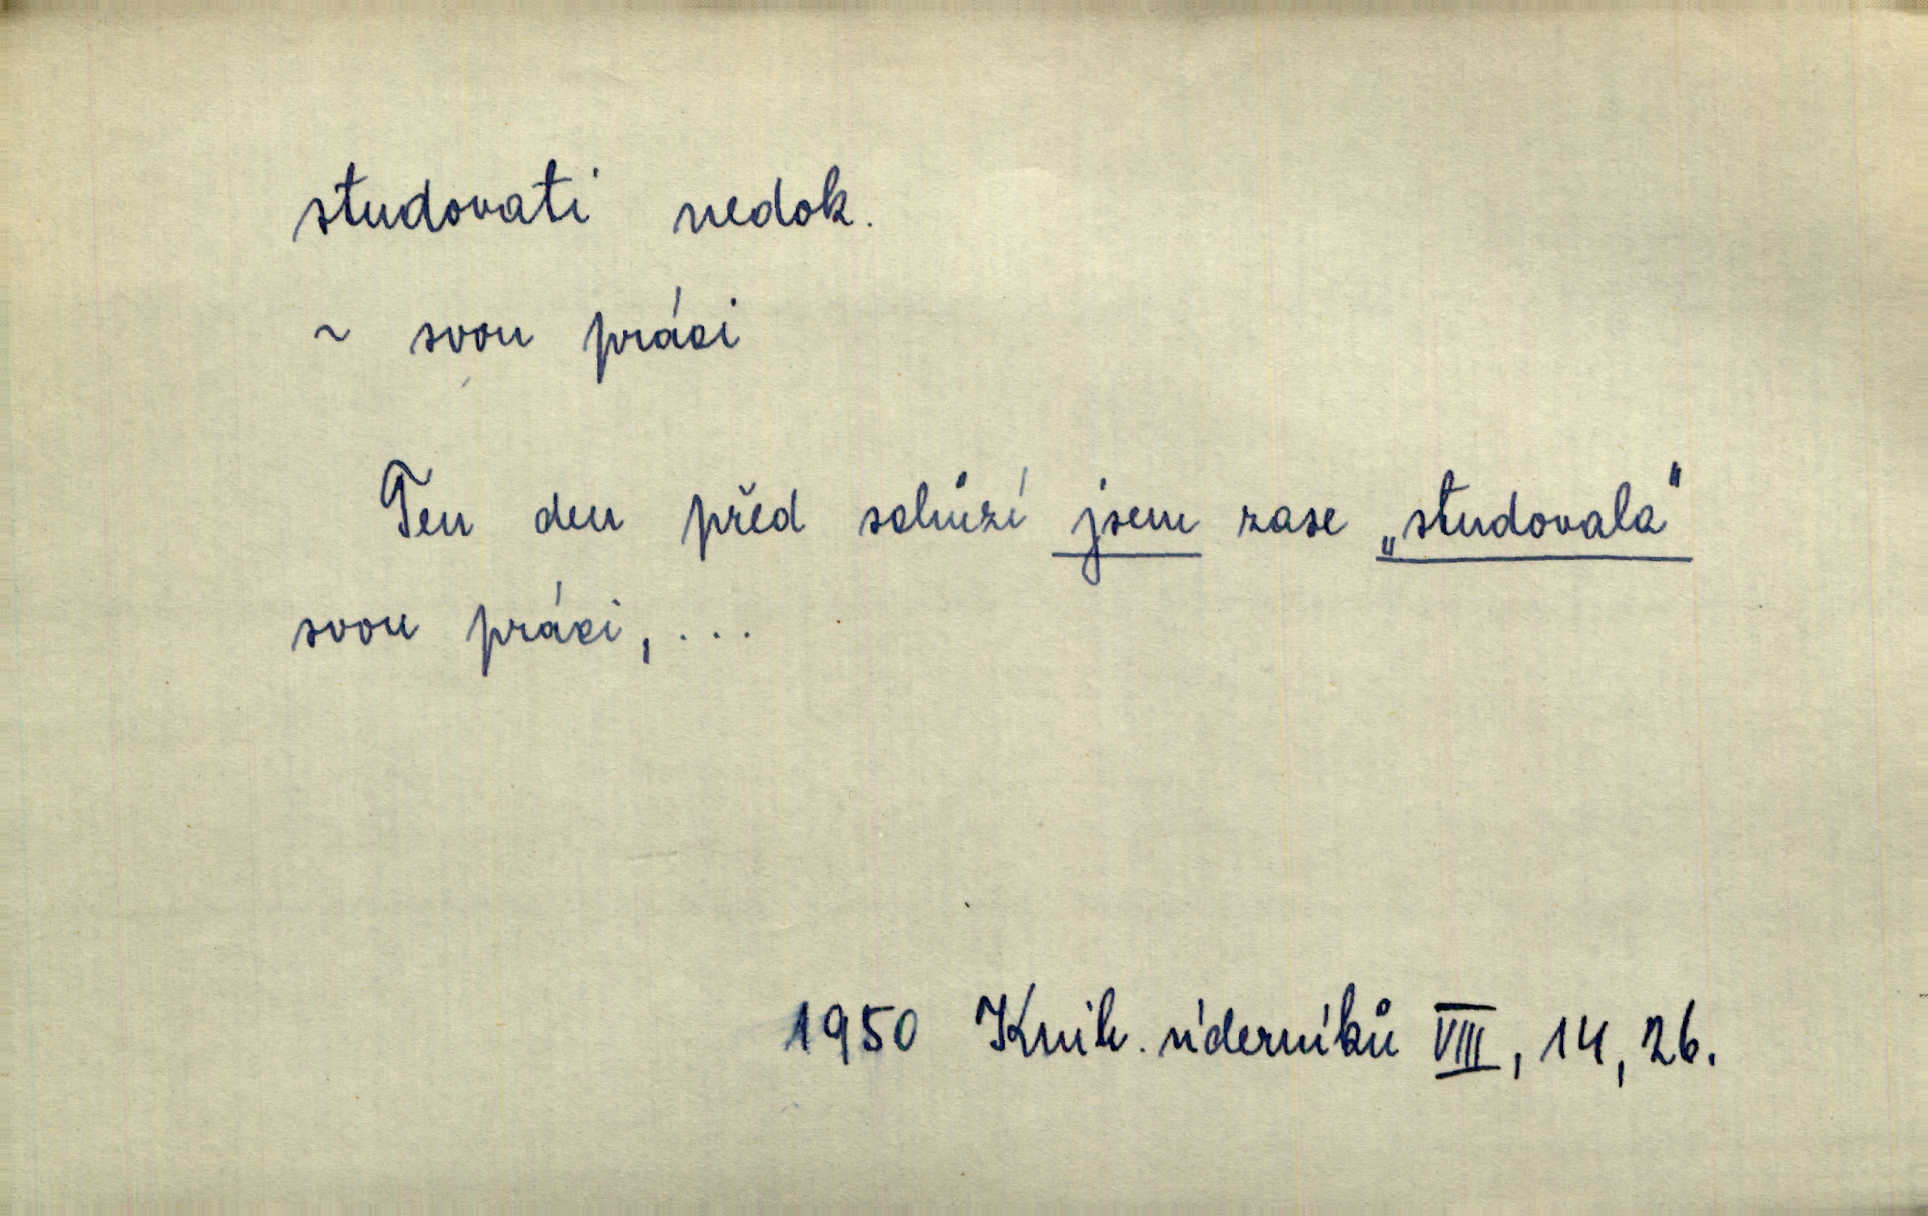 studovati nedok.
~ svou práci
Ten den před schůzí jsem zase „studovala“
svou práci, ...
1950 Knih. úderníků VIII, 14, 26.